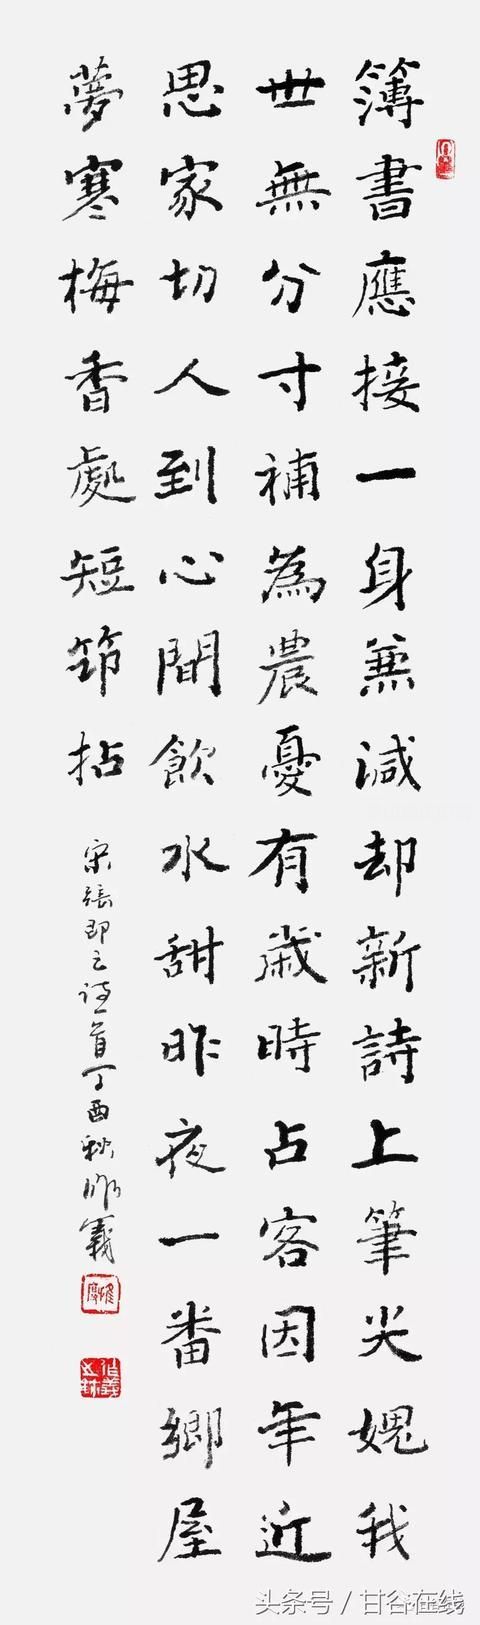 簿書應接一身兼減却新詩上筆尖媿我
世無分寸補為農憂有歲時占客因年近
思家切人到心間飲水甜昨夜一番鄉屋
夢寒梅香處短筇拈
宋張即之詩一首丁酉秋
头条号 / 甘谷在线